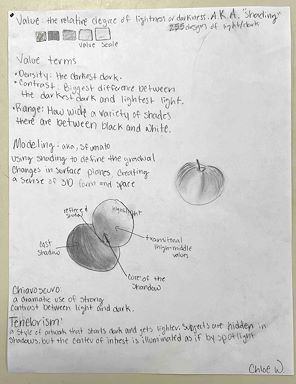 • Value: the relative degree of lightness or darkness. A.K.A. "Shading"
255 degrees of light/dark
value scale
Value terms
• Density: the darkest dark.
• Contrast: Biggest difference between
the darkest dark and lightest light.
• Range: How wide a variety of shades
there are between black and white.
Modeling: aka, sfumato
using shading to define the gradual
changes in surface planes, creating
a sense of 3D form and space
reflected
highlight
cast
shadow
transitional
high-middle
values
core of the
shadow
Chiaroscuro:
a dramatic use of strong
contrast between light and dark.
Tenebrism:
a style of artwork that starts dark and gets lighter. Subjects are hidden in
shadows, but the center of intrest is illuminated as if by spotlight
Chloe W.